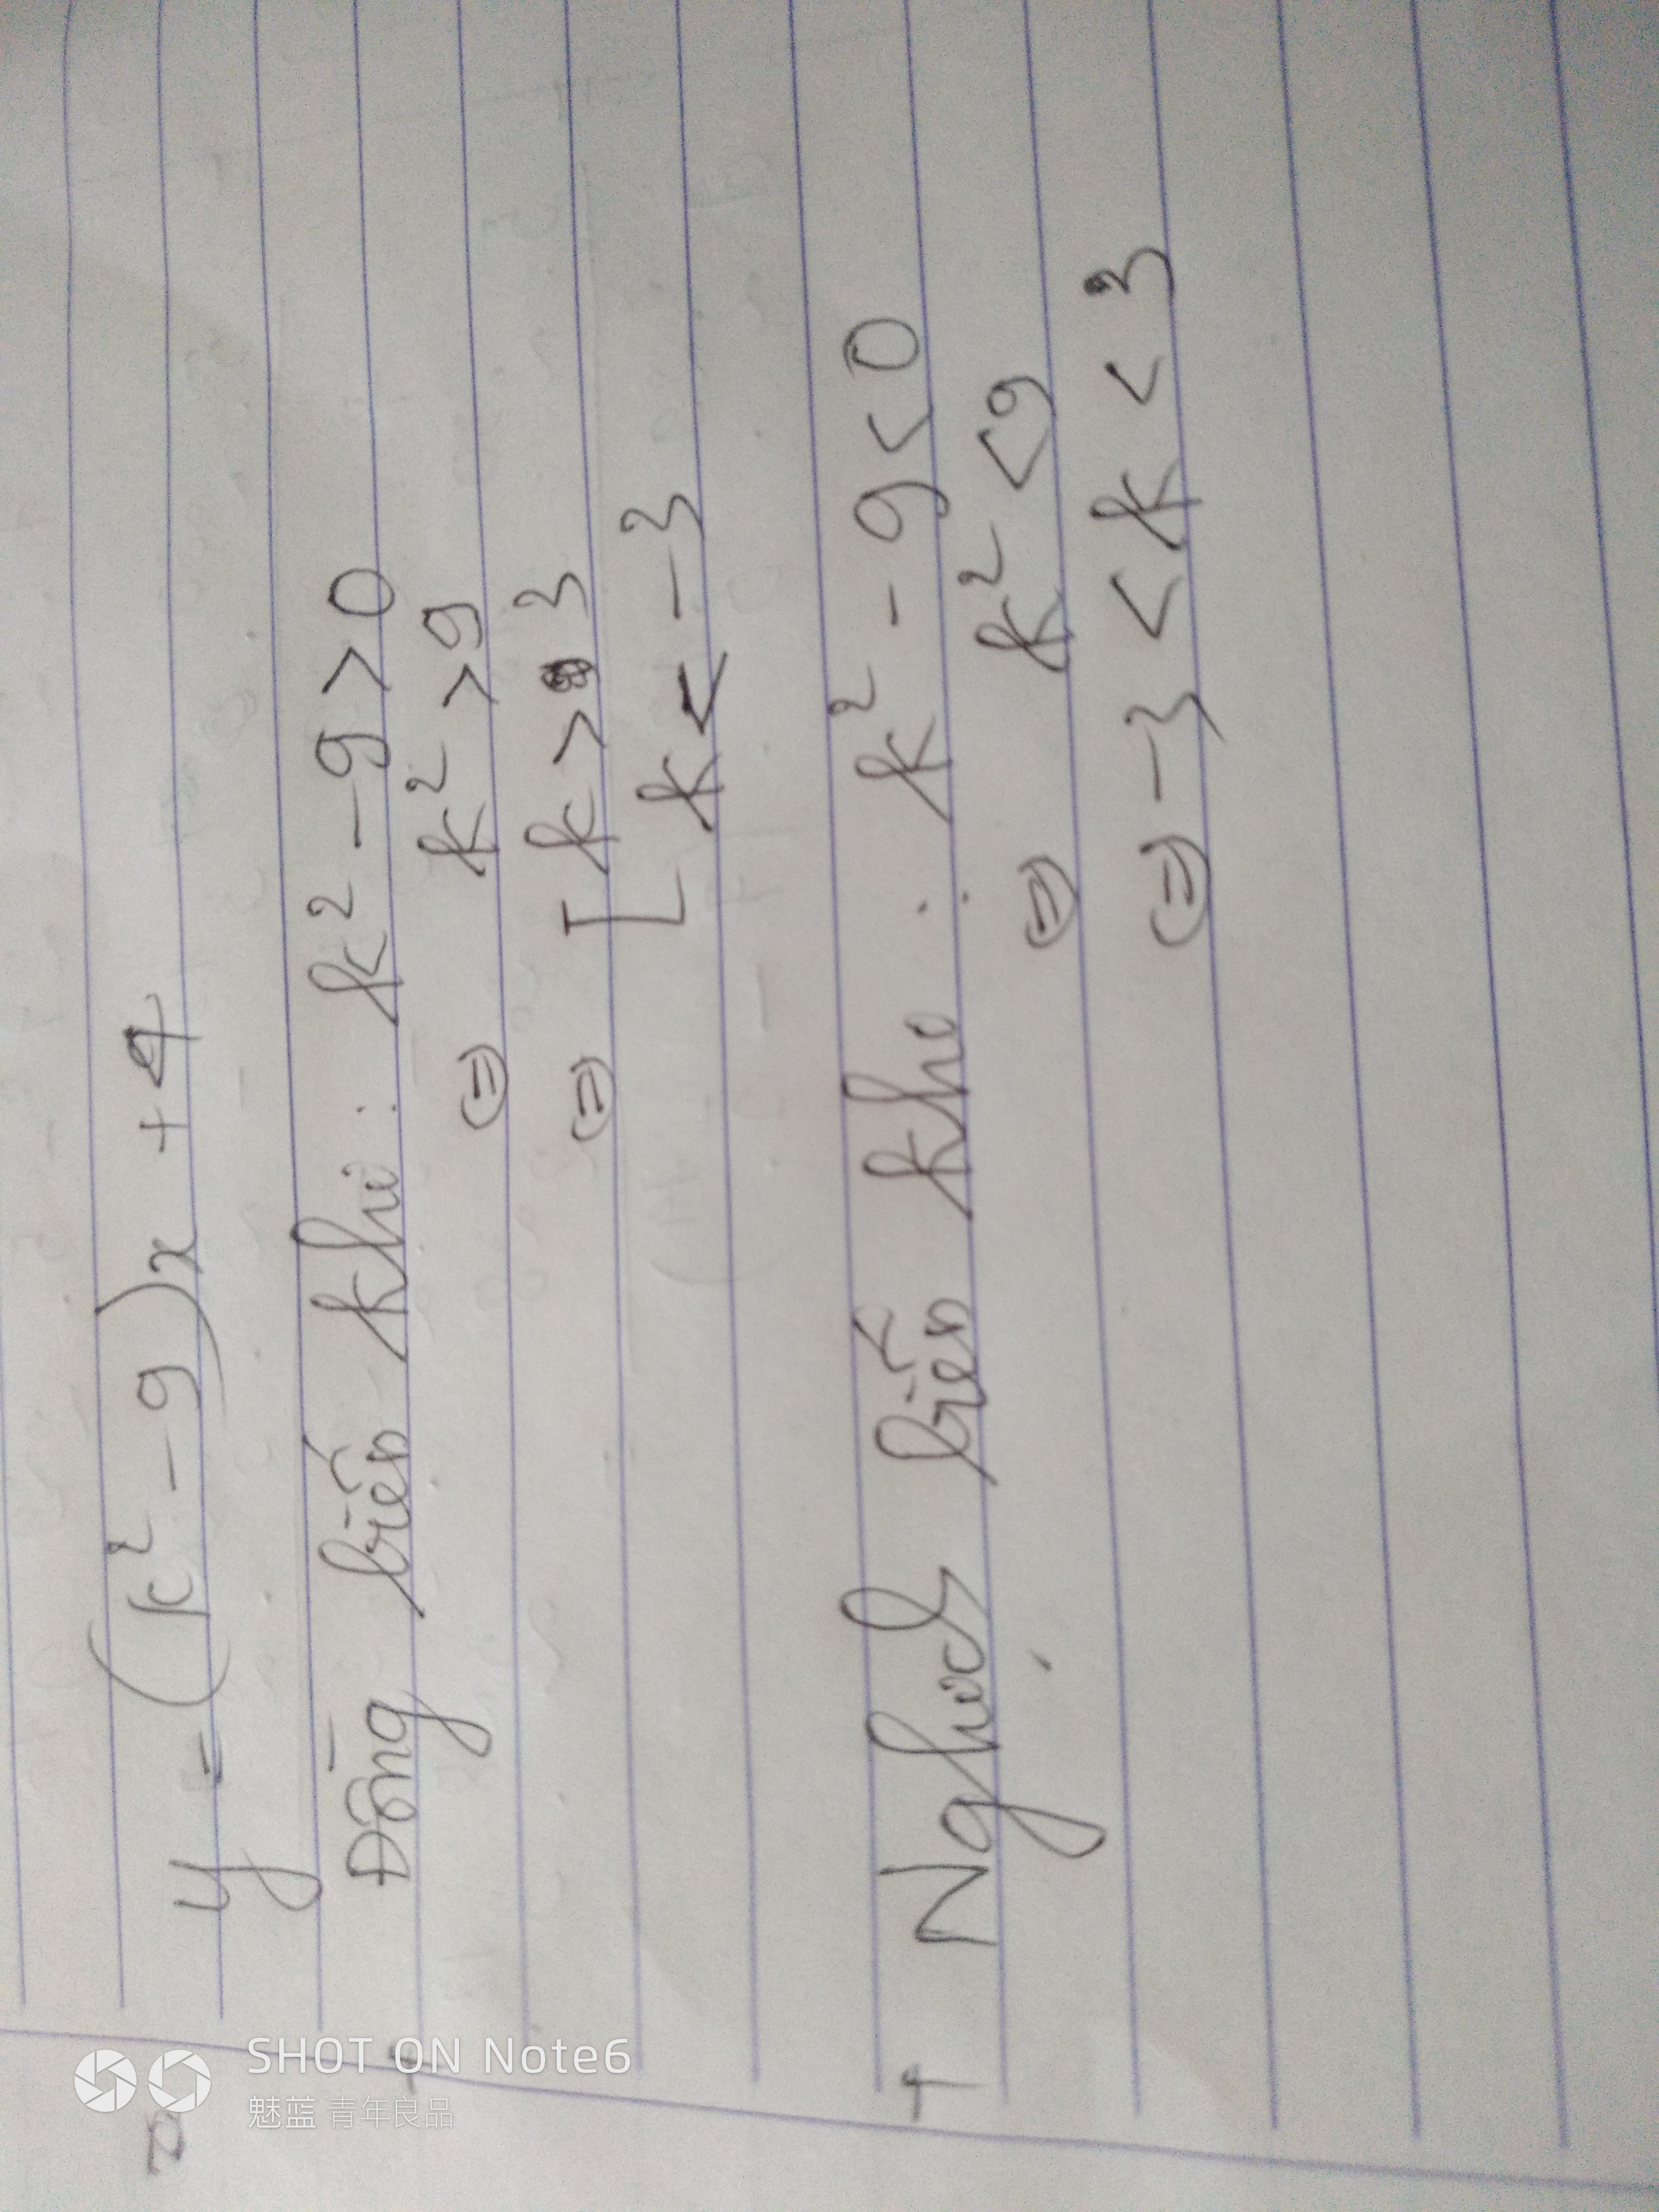 y = (k² - 9)x + 4
+ Đồng biến khi: k² - 9 > 0
(=) k² > 9
(=) [ k > 3
k < -3
+ Nghịch biến khi: k² - 9 < 0
(=) k² < 9
(=) -3 < k < 3
SHOT ON Note6
魅蓝 青年良品